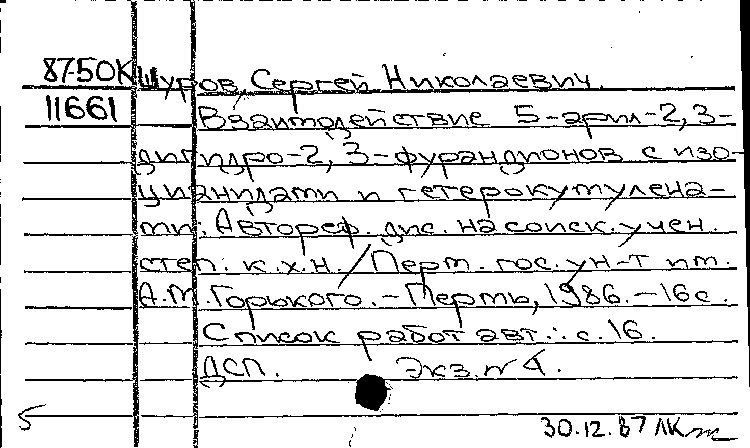 8750К Шуров, Сергей Николаевич.
11661 Взаимодействие 5-арил-2,3-
дигидро-2,3-фурандионов с изо-
цианидами и гетерокумулена-
ми: Автореф. дис. на соиск. учен.
степ. к.х.н. / Перм. гос. ун-т им.
А.М. Горького. – Пермь, 1986. – 16 с.
Список работ авт.: с. 16.
ДСП. Экз. № 4.
5 30.12.87 ЛК